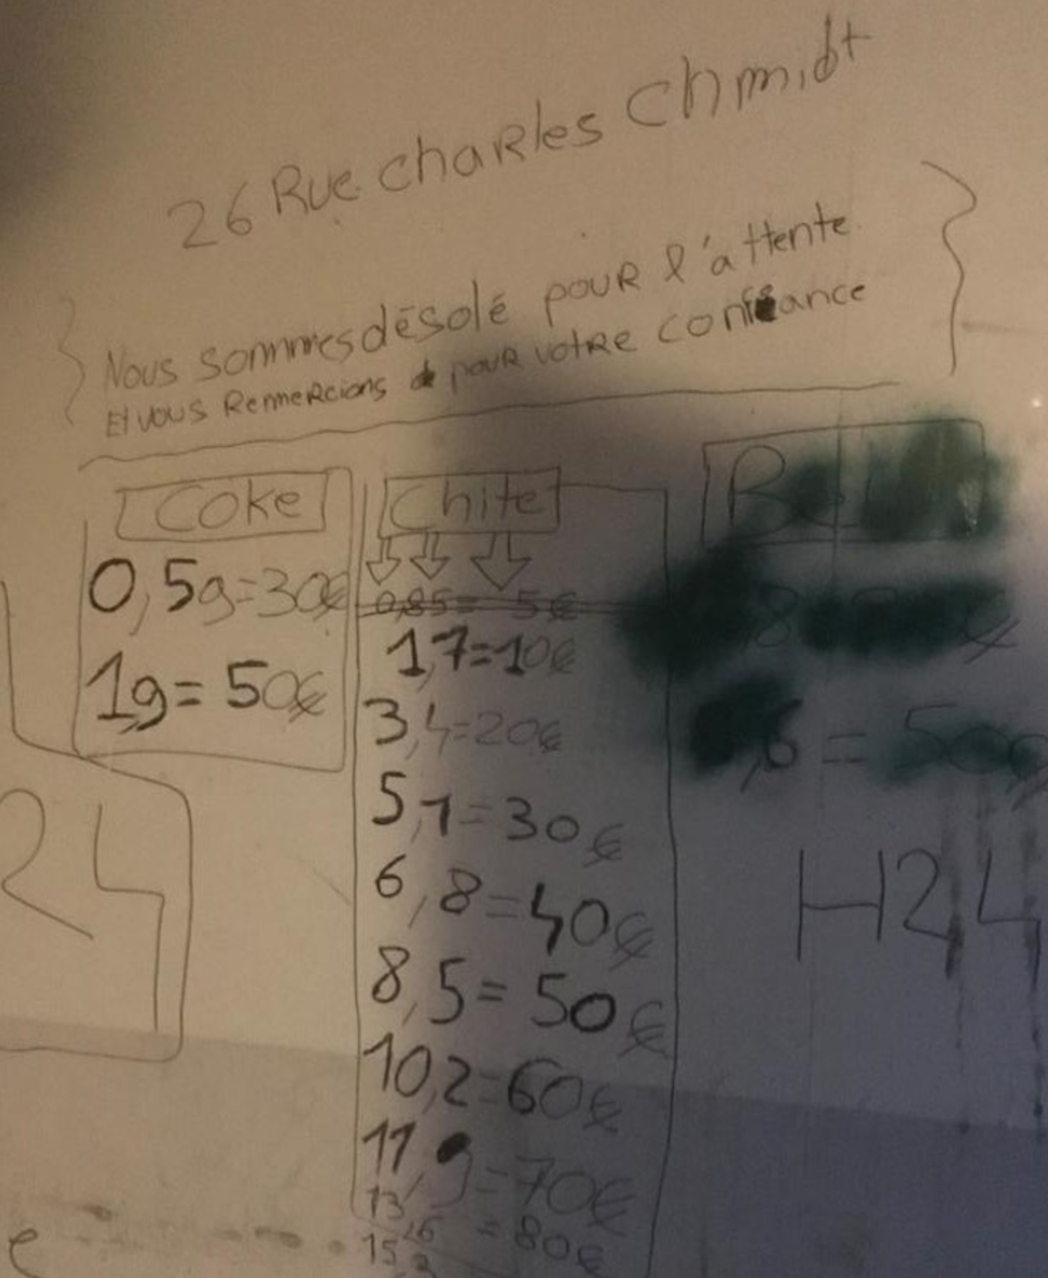 26 Rue Charles Chmidt
Nous sommes désolé pour l'attente
Et vous Remmercions pour votre confiance
Coke
0,5g=30€
1g=50€
Chite
0,85= 5€
1,7=10€
3,4=20€
5,1=30€
6,8=40€
8,5=50€
10,2=60€
11,9=70€
13,6=80€
24
H24